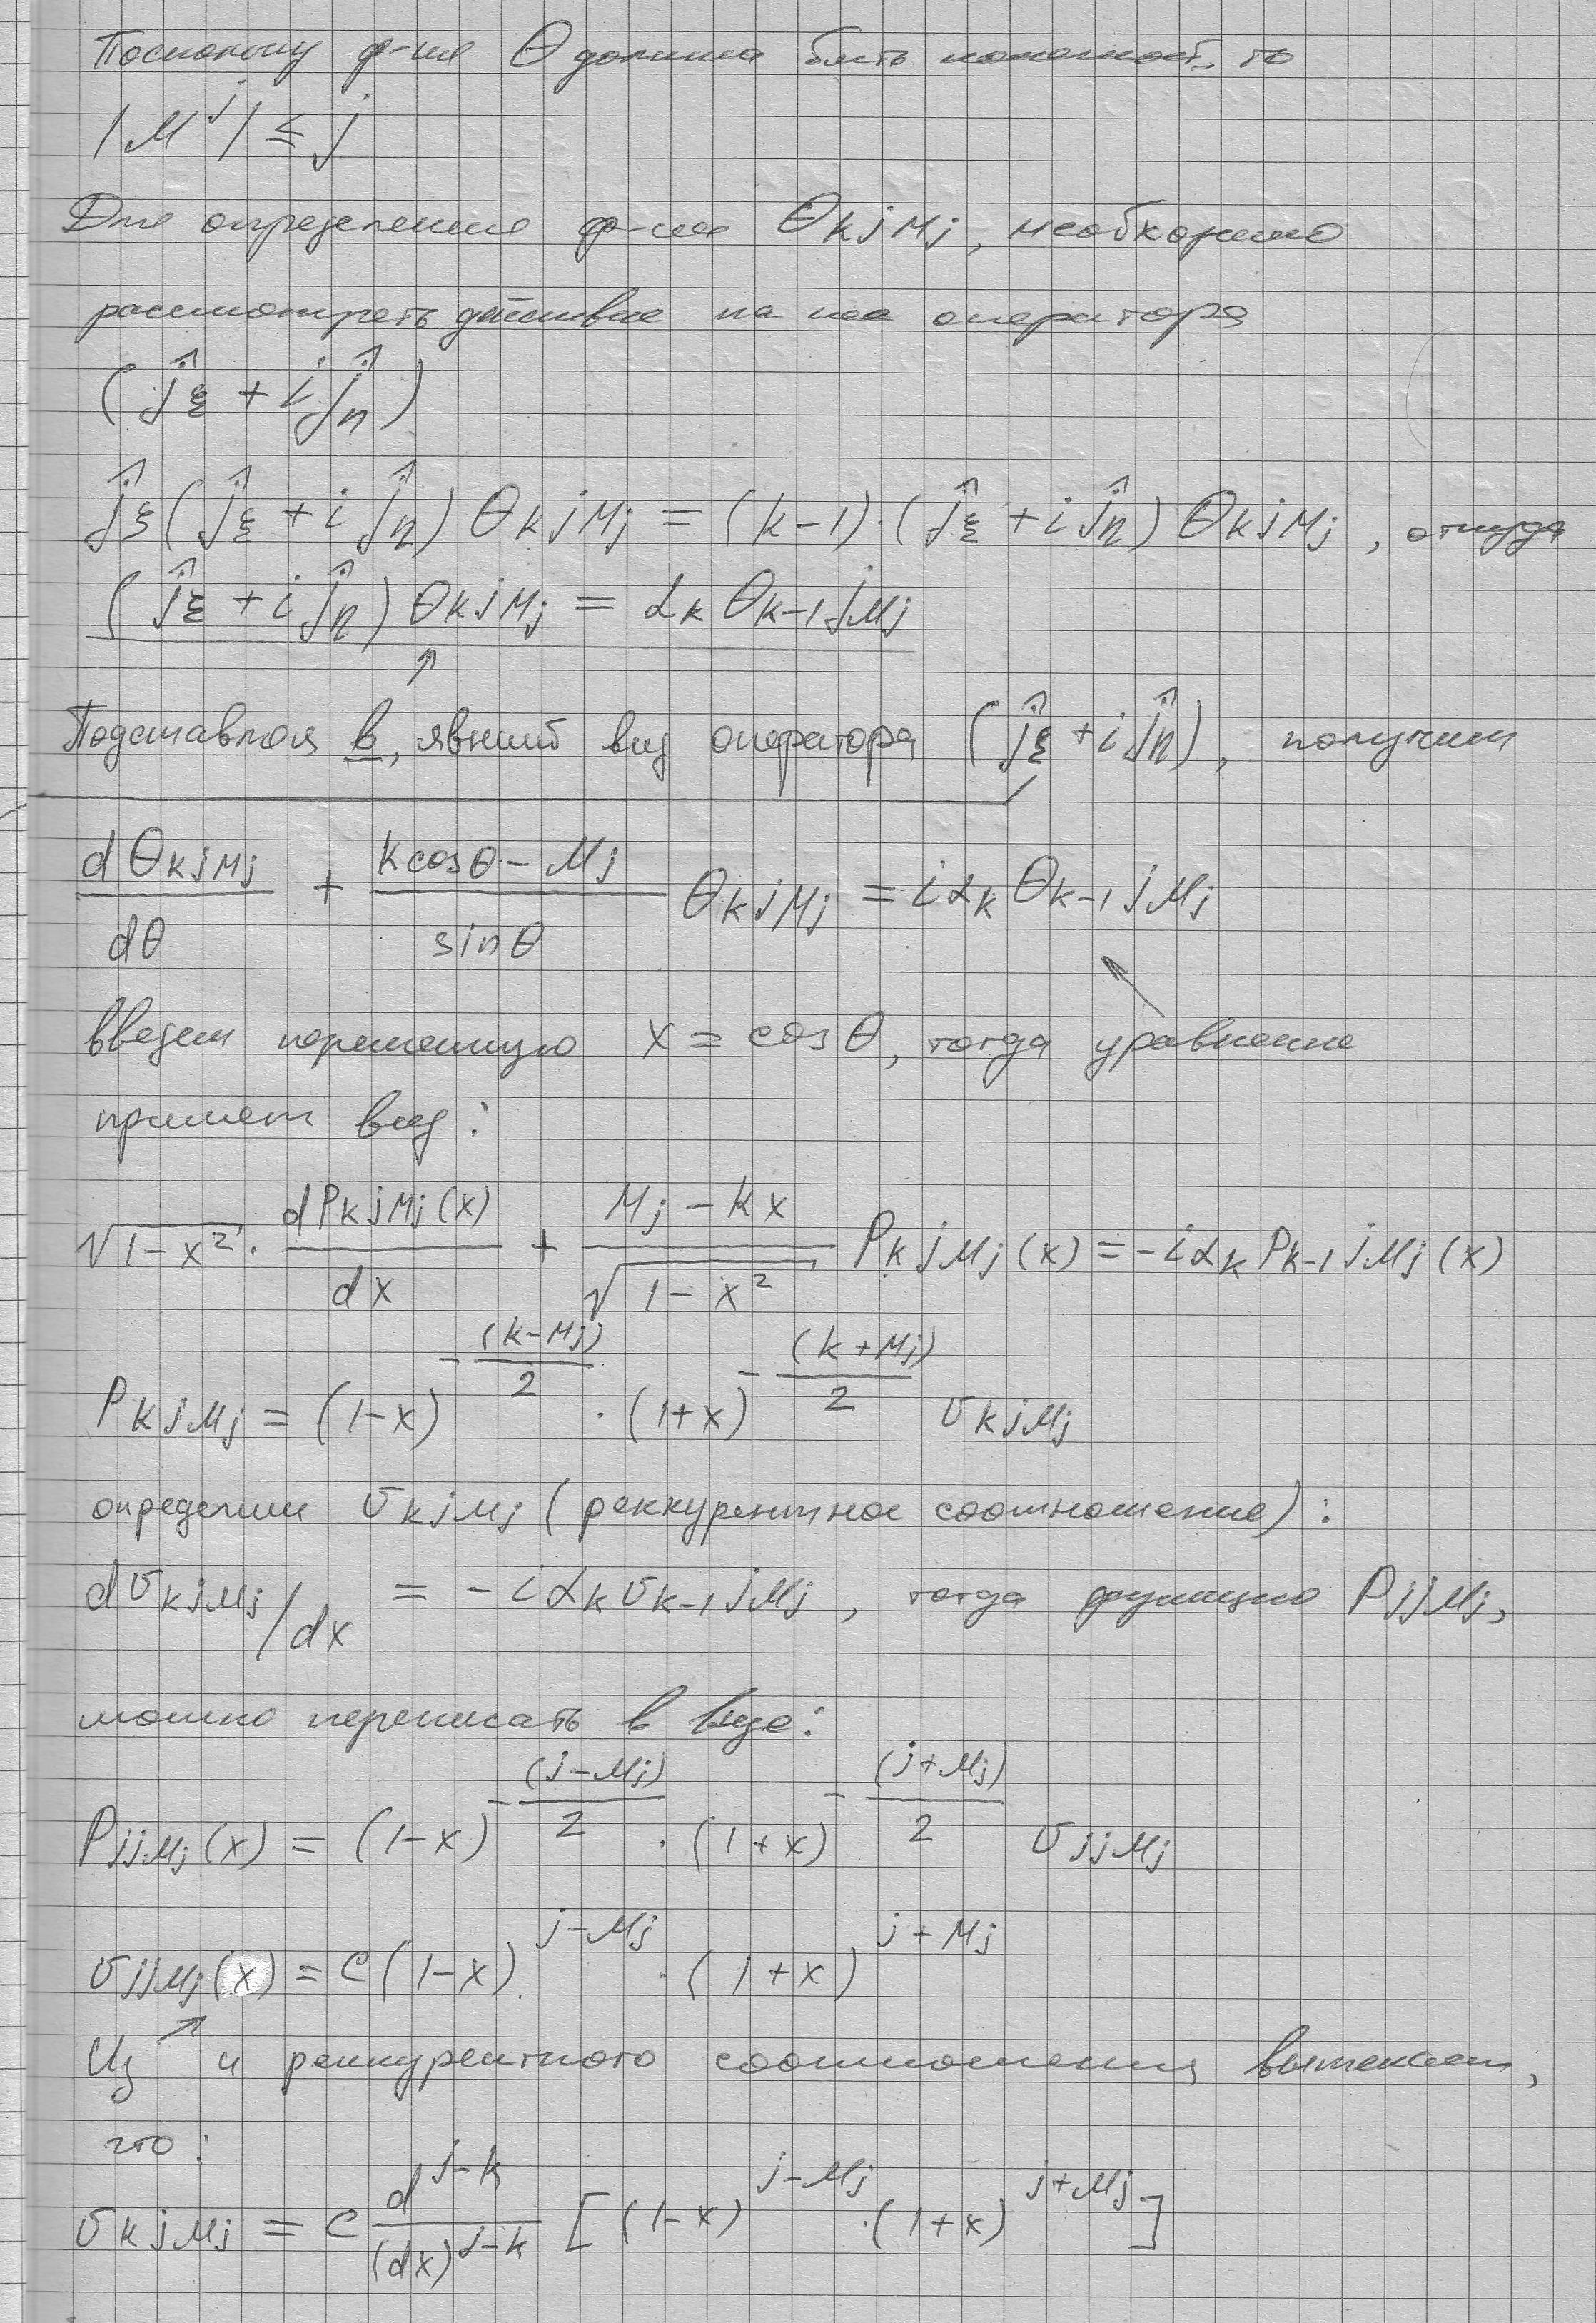 Поскольку ф-ия Θ должна быть конечной, то
|M^j| ≤ j
Для определения ф-ии Θ_{KjMj}, необходимо
рассмотреть действие на неё оператора
(ĵ_ξ + i ĵ_η)
ĵ_ξ (ĵ_ξ + i ĵ_η) Θ_{KjMj} = (k-1)·(ĵ_ξ + i ĵ_η) Θ_{KjMj}, откуда
(ĵ_ξ + i ĵ_η) Θ_{KjMj} = α_k Θ_{k-1jMj}
↑
Подставляя в, явный вид оператора (ĵ_ξ + i ĵ_η), получим
dΘ_{KjMj}/dθ + (k cosθ - Mj)/sinθ Θ_{KjMj} = iα_k Θ_{k-1jMj}
введем переменную x = cos θ, тогда уравнение
примет вид:
√(1-x²) · dP_{KjMj}(x)/dx + (Mj - kx)/√(1-x²) P_{kjMj}(x) = -iα_k P_{k-1jMj}(x)
P_{KjMj} = (1-x)^{-(k-Mj)/2} · (1+x)^{-(k+Mj)/2} σ_{KjMj}
определим σ_{KjMj} (реккурентное соотношение):
dσ_{KjMj}/dx = -iα_k σ_{k-1jMj}, тогда функцию P_{jjMj},
можно переписать в виде:
P_{jjMj}(x) = (1-x)^{-(j-Mj)/2} · (1+x)^{-(j+Mj)/2} σ_{jjMj}
σ_{jjMj}(x) = C(1-x)^{j-Mj} · (1+x)^{j+Mj}
Из ↗ и реккурентного соотношения вытекает,
что:
σ_{KjMj} = C d^{j-k}/(dx)^{j-k} [(1-x)^{j-Mj} · (1+x)^{j+Mj}]